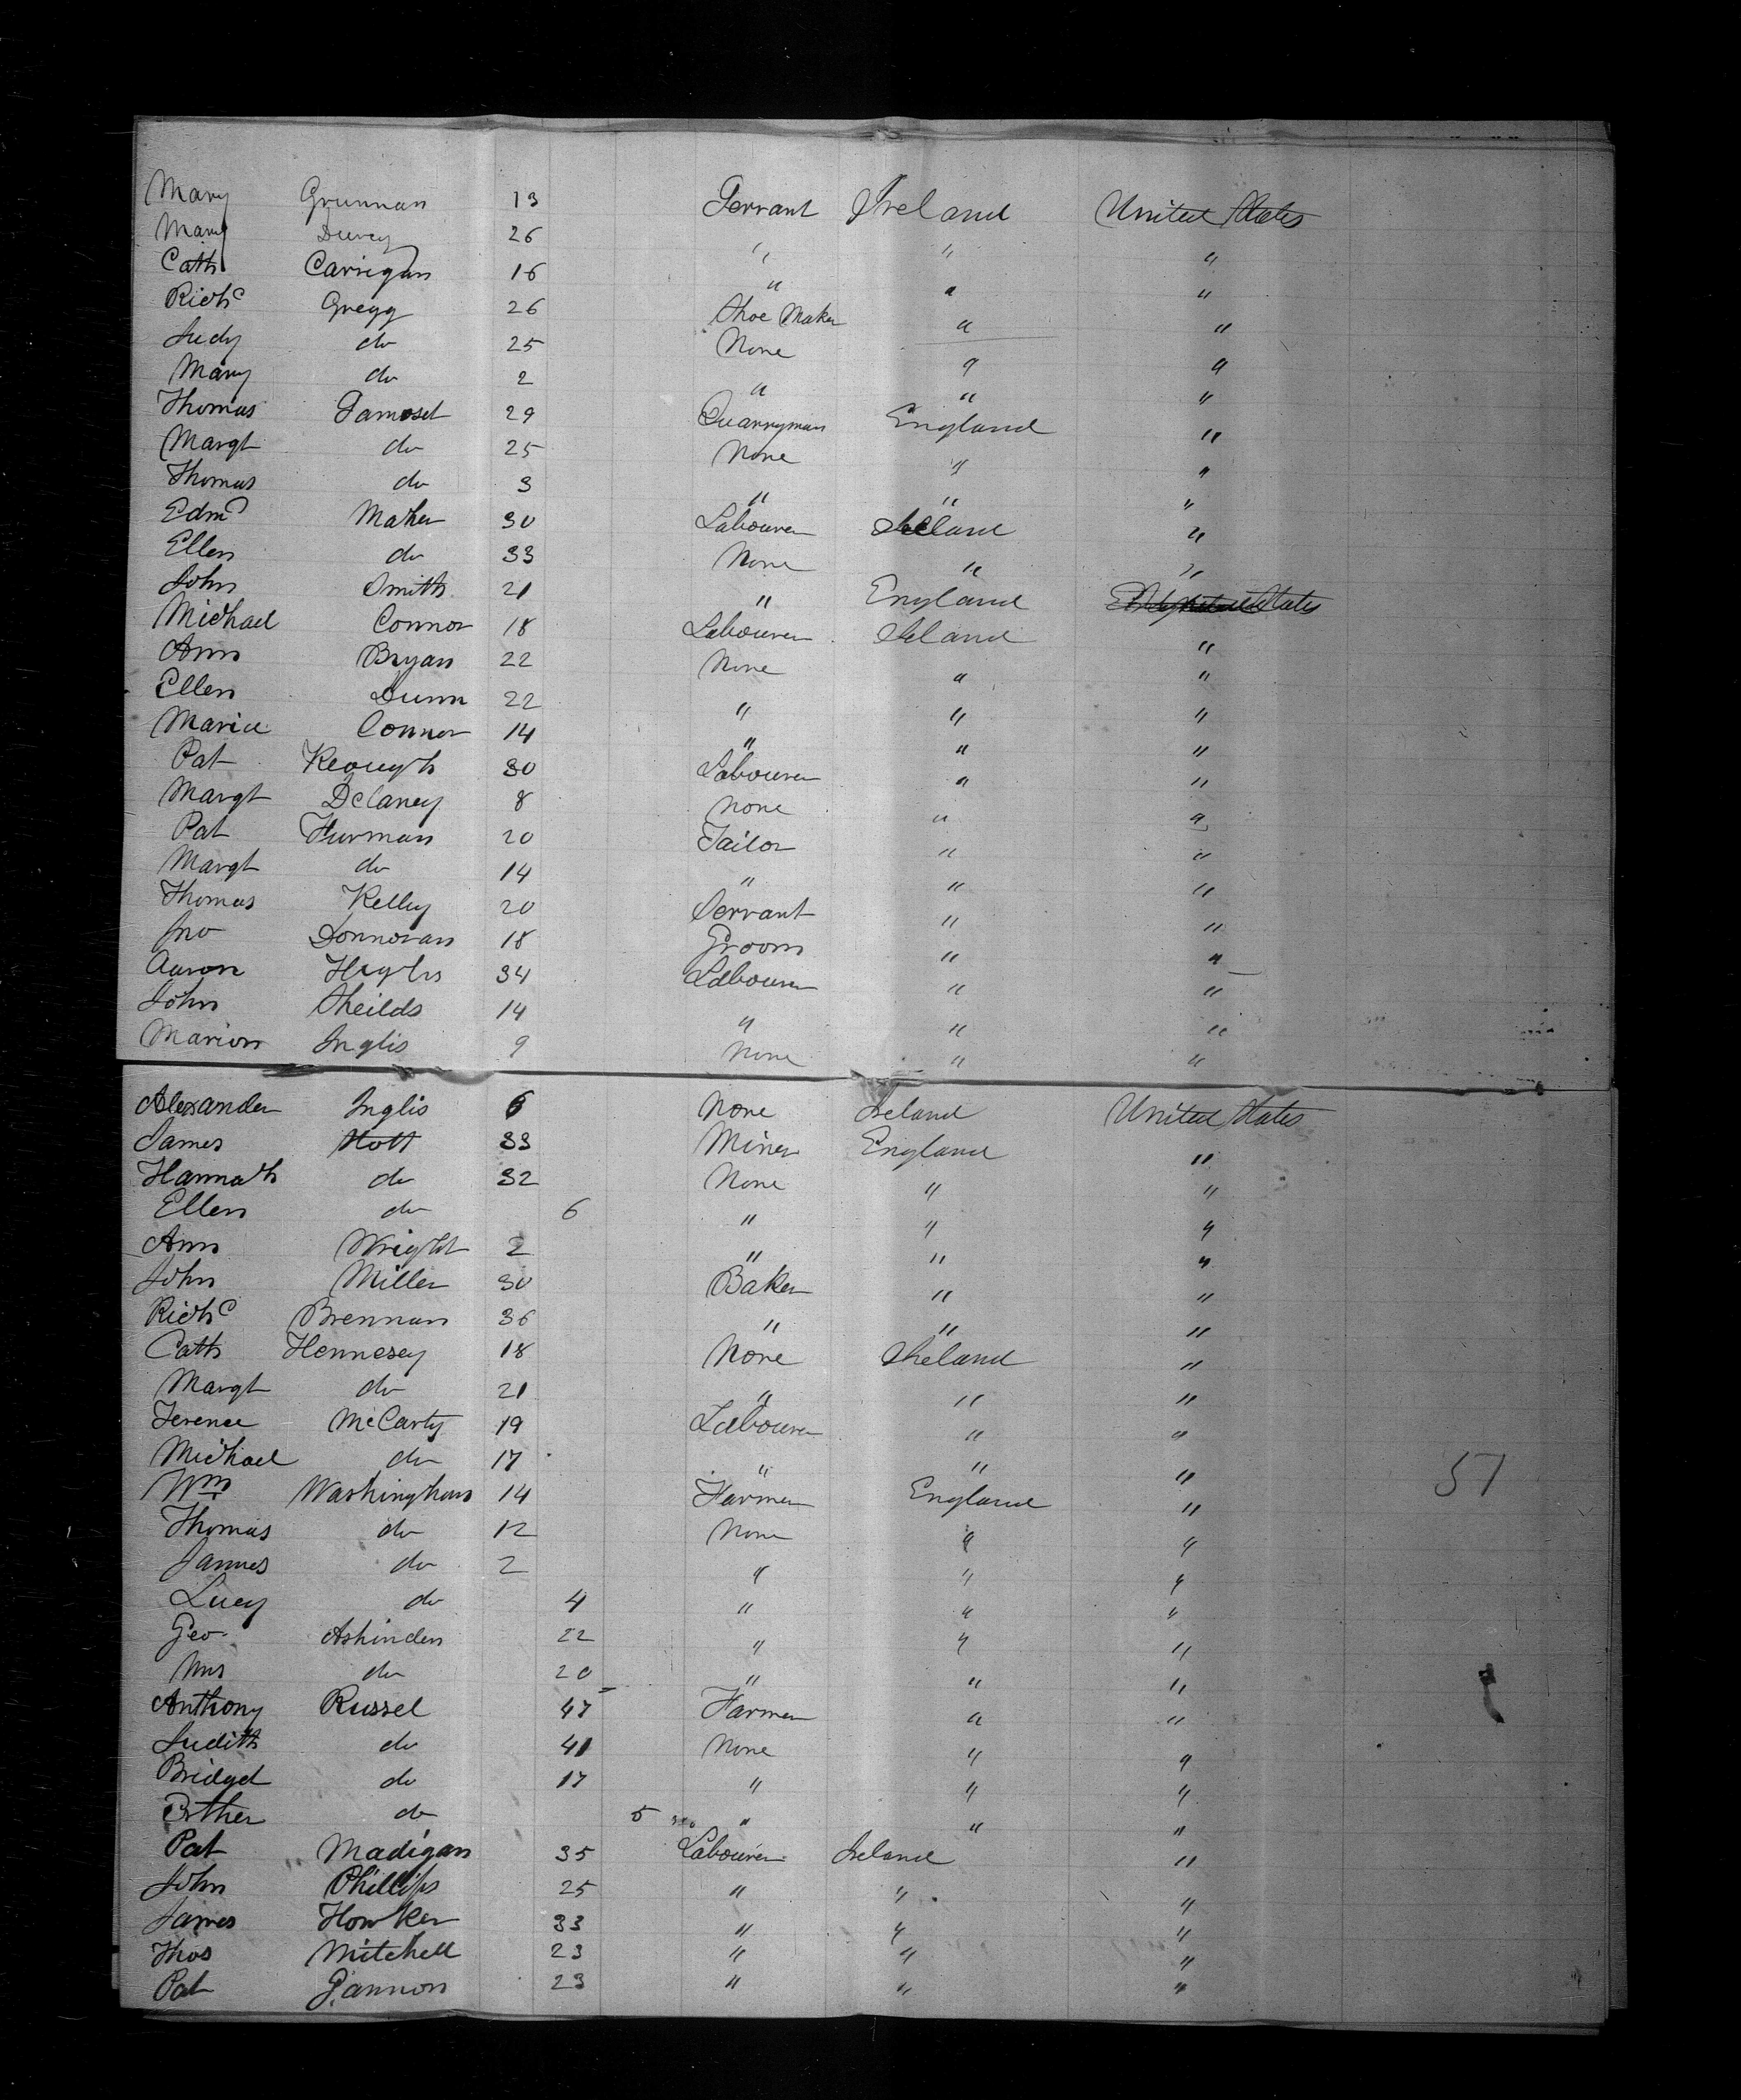 Mary Grunnan 13 Servant Ireland United States
Mary Durey 26 " " "
Cath Carrigan 16 " " "
Richd Gregg 26 Shoe Maker " "
Judy do 25 None " "
Mary do 2 " " "
Thomas 29 Quarryman England "
Margt do 25 None " "
Thomas do 3 " " "
Edmd Maher 30 Labourer Ireland "
Ellen do 33 None " "
John Smith 21 " England States
Michael Connor 18 Labourer Ireland "
Ann Bryan 22 None " "
Ellen Dunn 22 " " "
Maria Connor 14 " " "
Pat Keough 30 Labourer " "
Margt Delaney 8 None " "
Pat Furman 20 Tailor " "
Margt do 14 " " "
Thomas Kelley 20 Servant " "
Jno Donnovan 18 Groom " "
Aaron 34 Labourer " "
John Sheilds 14 " " "
Marion Inglis 9 None " "
Alexander Inglis 6 None Ireland United States
James Hott 33 Miner England "
Hannah do 32 None " "
Ellen do 6 " " "
Ann Wright 2 " " "
John Miller 30 Baker " "
Richd Brennan 36 " " "
Cath Hennesey 18 None Ireland "
Margt do 21 " " "
Terence McCarty 19 Labourer " "
Michael do 17 " " "
57
Wm Washington 14 Farmer England "
Thomas do 12 None " "
James do 2 " " "
Lucy do 4 " " "
Geo Ashinden 22 " " "
Mrs do 20 " " "
Anthony Russel 47 Farmer " "
Judith do 41 None " "
Bridget do 17 " " "
Esther do 5 " " "
Pat Madigan 35 Labourer Ireland "
John Phillips 25 " " "
James Howker 33 " " "
Thos Mitchell 23 " " "
Pat Gannon 23 " " "